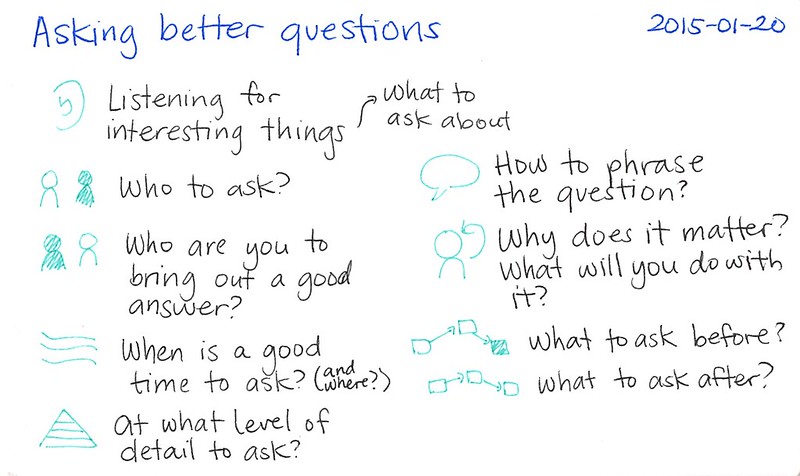 Asking better questions
2015-01-20
Listening for
interesting things
what to
ask about
Who to ask?
Who are you to
bring out a good
answer?
When is a good
time to ask? (and
where?)
At what level of
detail to ask?
How to phrase
the question?
Why does it matter?
What will you do with
it?
What to ask before?
What to ask after?